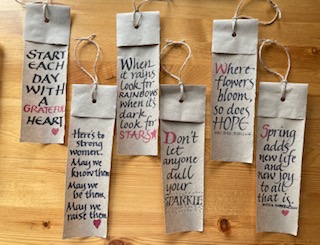 START
EACH
DAY
WITH
A
GRATEFUL
HEART
Here's to
strong
women.
May we
know them.
May we
be them.
May we
raise them
When
it rains
look for
RAINBOWS
when it's
dark
look for
STARS
Don't
let
anyone
dull
your
SPARKLE
Where
flowers
bloom,
so does
HOPE
Spring
adds
new life
and
new joy
to all
that is.